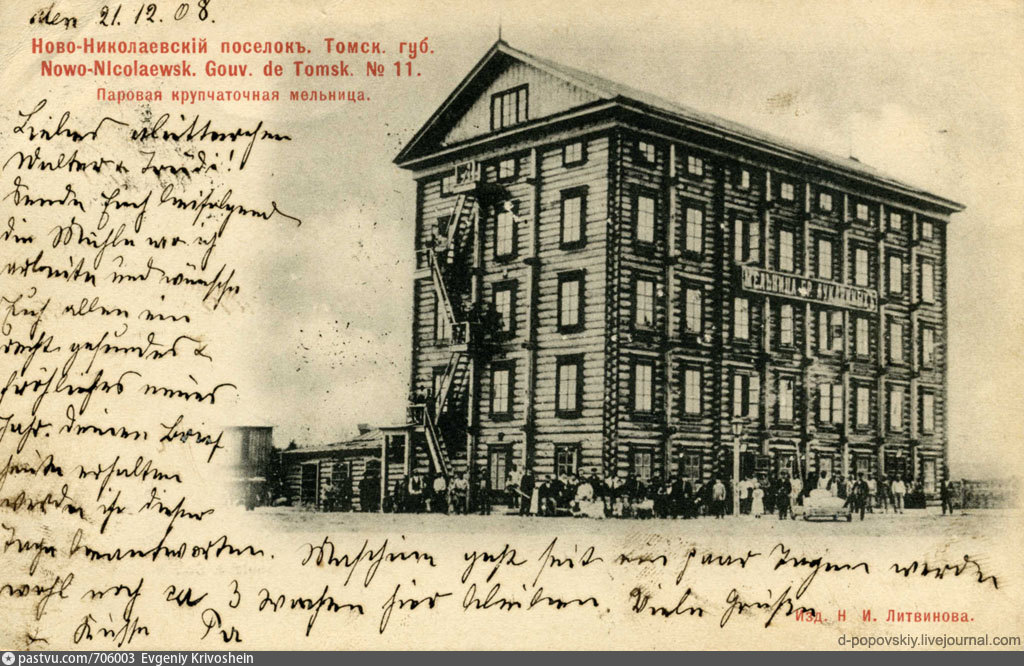 den 21.12.08.
Ново-Николаевскiй поселокъ. Томск. губ.
Nowo-NIcolaewsk. Gouv. de Tomsk. № 11.
Паровая крупчаточная мельница.
Liebes Mütterchen
Walter & Trudi!
Sende Euch beifolgend
die Mühle wo ich
arbeite und wünsche
Euch allen ein
recht gesundes &
fröhliches neues
Jahr. Deinen Brief
heute erhalten
werde ihn dieser
Tage beantworten. Maschine geht seit ein paar Tagen werden
wohl noch ca 3 Wochen hier bleiben. Viele Grüsse
& Küsse
МЕЛЬНИЦА
Изд. Н И. Литвинова.
d-popovskiy.livejournal.com
pastvu.com/706003 Evgeniy Krivoshein